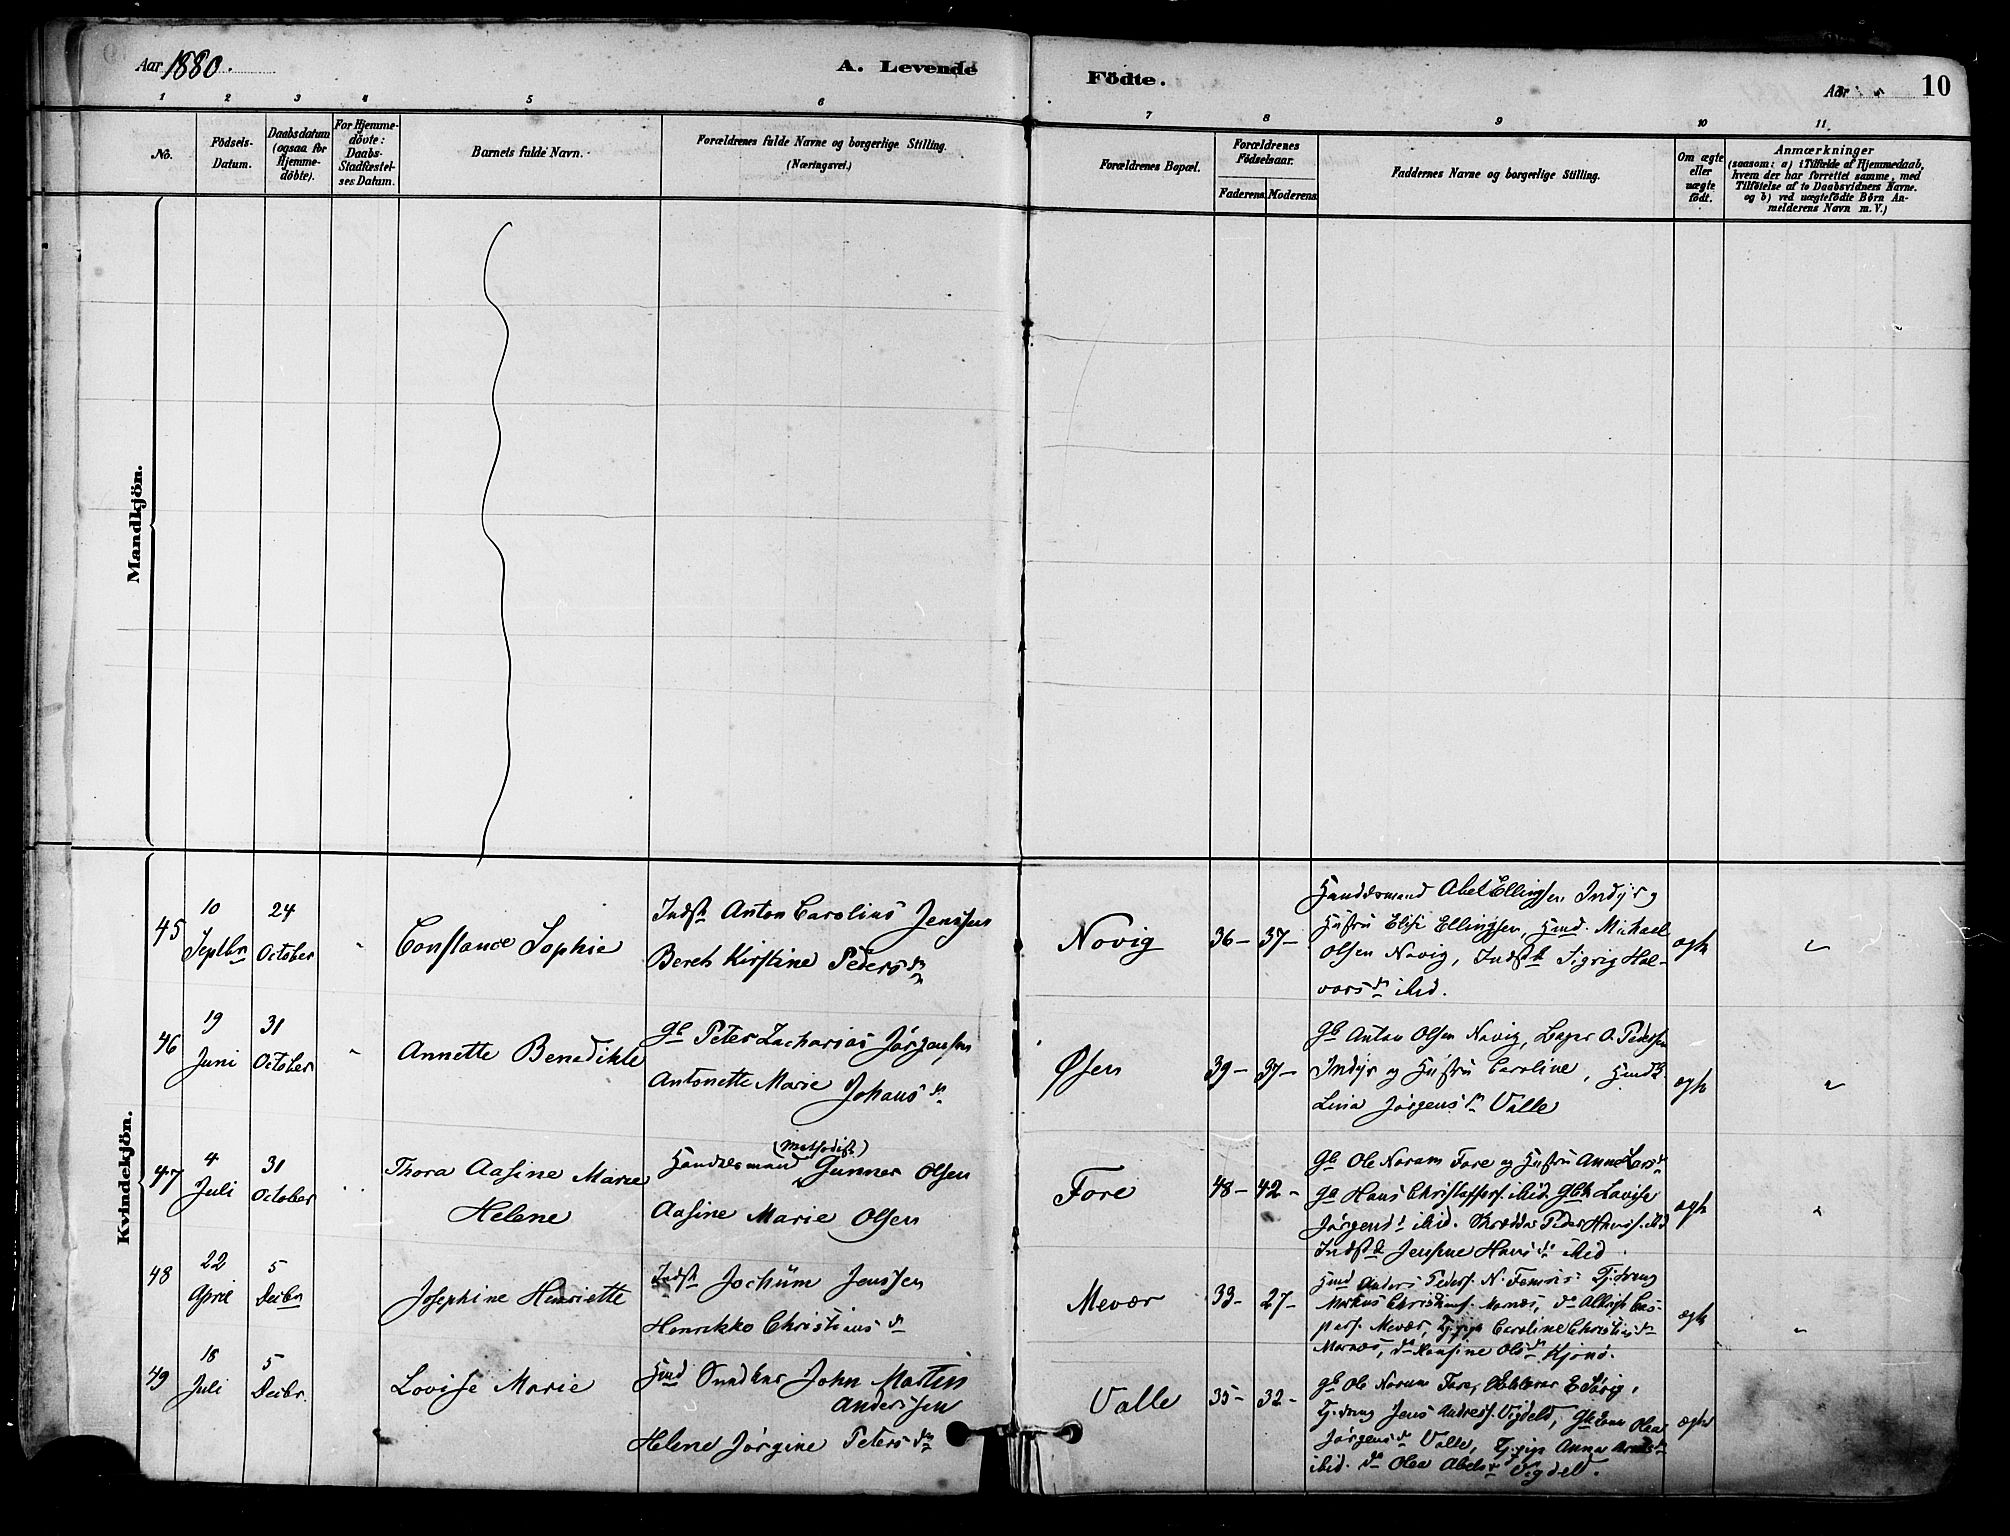 Aar 1880.
A. Levende
Födte.
Aar
10
1 2 3 4 5 6
7 8 9 10 11.
No.
Födsels-
Datum.
Daabsdatum
(ogsaa for
Hjemme-
döbte).
For Hjemme-
döbte:
Daabs-
Stadfæstel-
ses Datum.
Barnets fulde Navn.
Forældrenes fulde Navne og borgerlige Stilling.
(Næringsvei.)
Forældrenes Bopæl.
Forældrenes
Födselsaar.
Faderens. Moderens.
Faddernes Navne og borgerlige Stilling.
Om ægte
eller
uægte
födt.
Anmærkninger
(saasom: a) i Tilfælde af Hjemmedaab,
hvem der har forrettet samme, med
Tilföielse af to Daabsvidners Navne.
og b) ved uægtefödte Börn An-
melderens Navn m. V.)
Mandkjön.
Kvindekjön.
45
10
Septbr
24
October
Constance Sophie
Indst Anton Carolius Jenssen
Bereth Kirstine Pedersdr
Novig
36-
37-
Handelsmand Abel Ellingsen Indyr og
Hustru Elise Ellingsen, Hmd. Michael
Olsen Novig, Indstk Sigrig Hal-
vorsdr ibid.
ægte
46
19
Juni
31
October
Annette Benedikte
gb Peter Zacharias Jørgensen
Antonette Marie Johansdr
Øsen
39-
37-
gb Anton Olsen Novig, O. Pedersen
Indyr og Hustru Caroline,
Lina Jørgensdr Valle
ægte
47
4
Juli
31
October
Thora Aasine Marie
Helene
(Methodist)
Handelsmand Gunner Olsen
Aasine Marie Olsen
Fore
48-
42-
gb Ole Norum Fore og Hustru Anne Larsdr
gb Hans Christoffers. ibid, gbk Lovise
Jørgensd ibid. Skrædder Peder Hanss. ibid
Indstk Jensine Hansdr ibid.
ægte
48
22
April
5
Decbr
Josephine Henriette
Indst Jochum Jenssen
Henrikke Christiansdr
Mevær
33-
27-
Hmd Anders Peders. N. Tj.dreng
Markus Christians. Mornæs, do Albrigt Cas-
pars. Mevær, Tj.pige Caroline Christiansdr
Mornæs, do Hansine Olsdr
ægte
49
18
Juli
5
Decbr.
Lovise Marie
Hmd John Martin
Anderssen
Helene Jørgine Petersdr
Valle
35-
32-
gb Ole Norum Fore, E Sørig,
Tj.dreng Jens Andreas. Vigdeld, Olea
Jørgensdr Valle, Tj.pige Anna
ibid. do Olea Abelsdr Vigdeld.
ægte